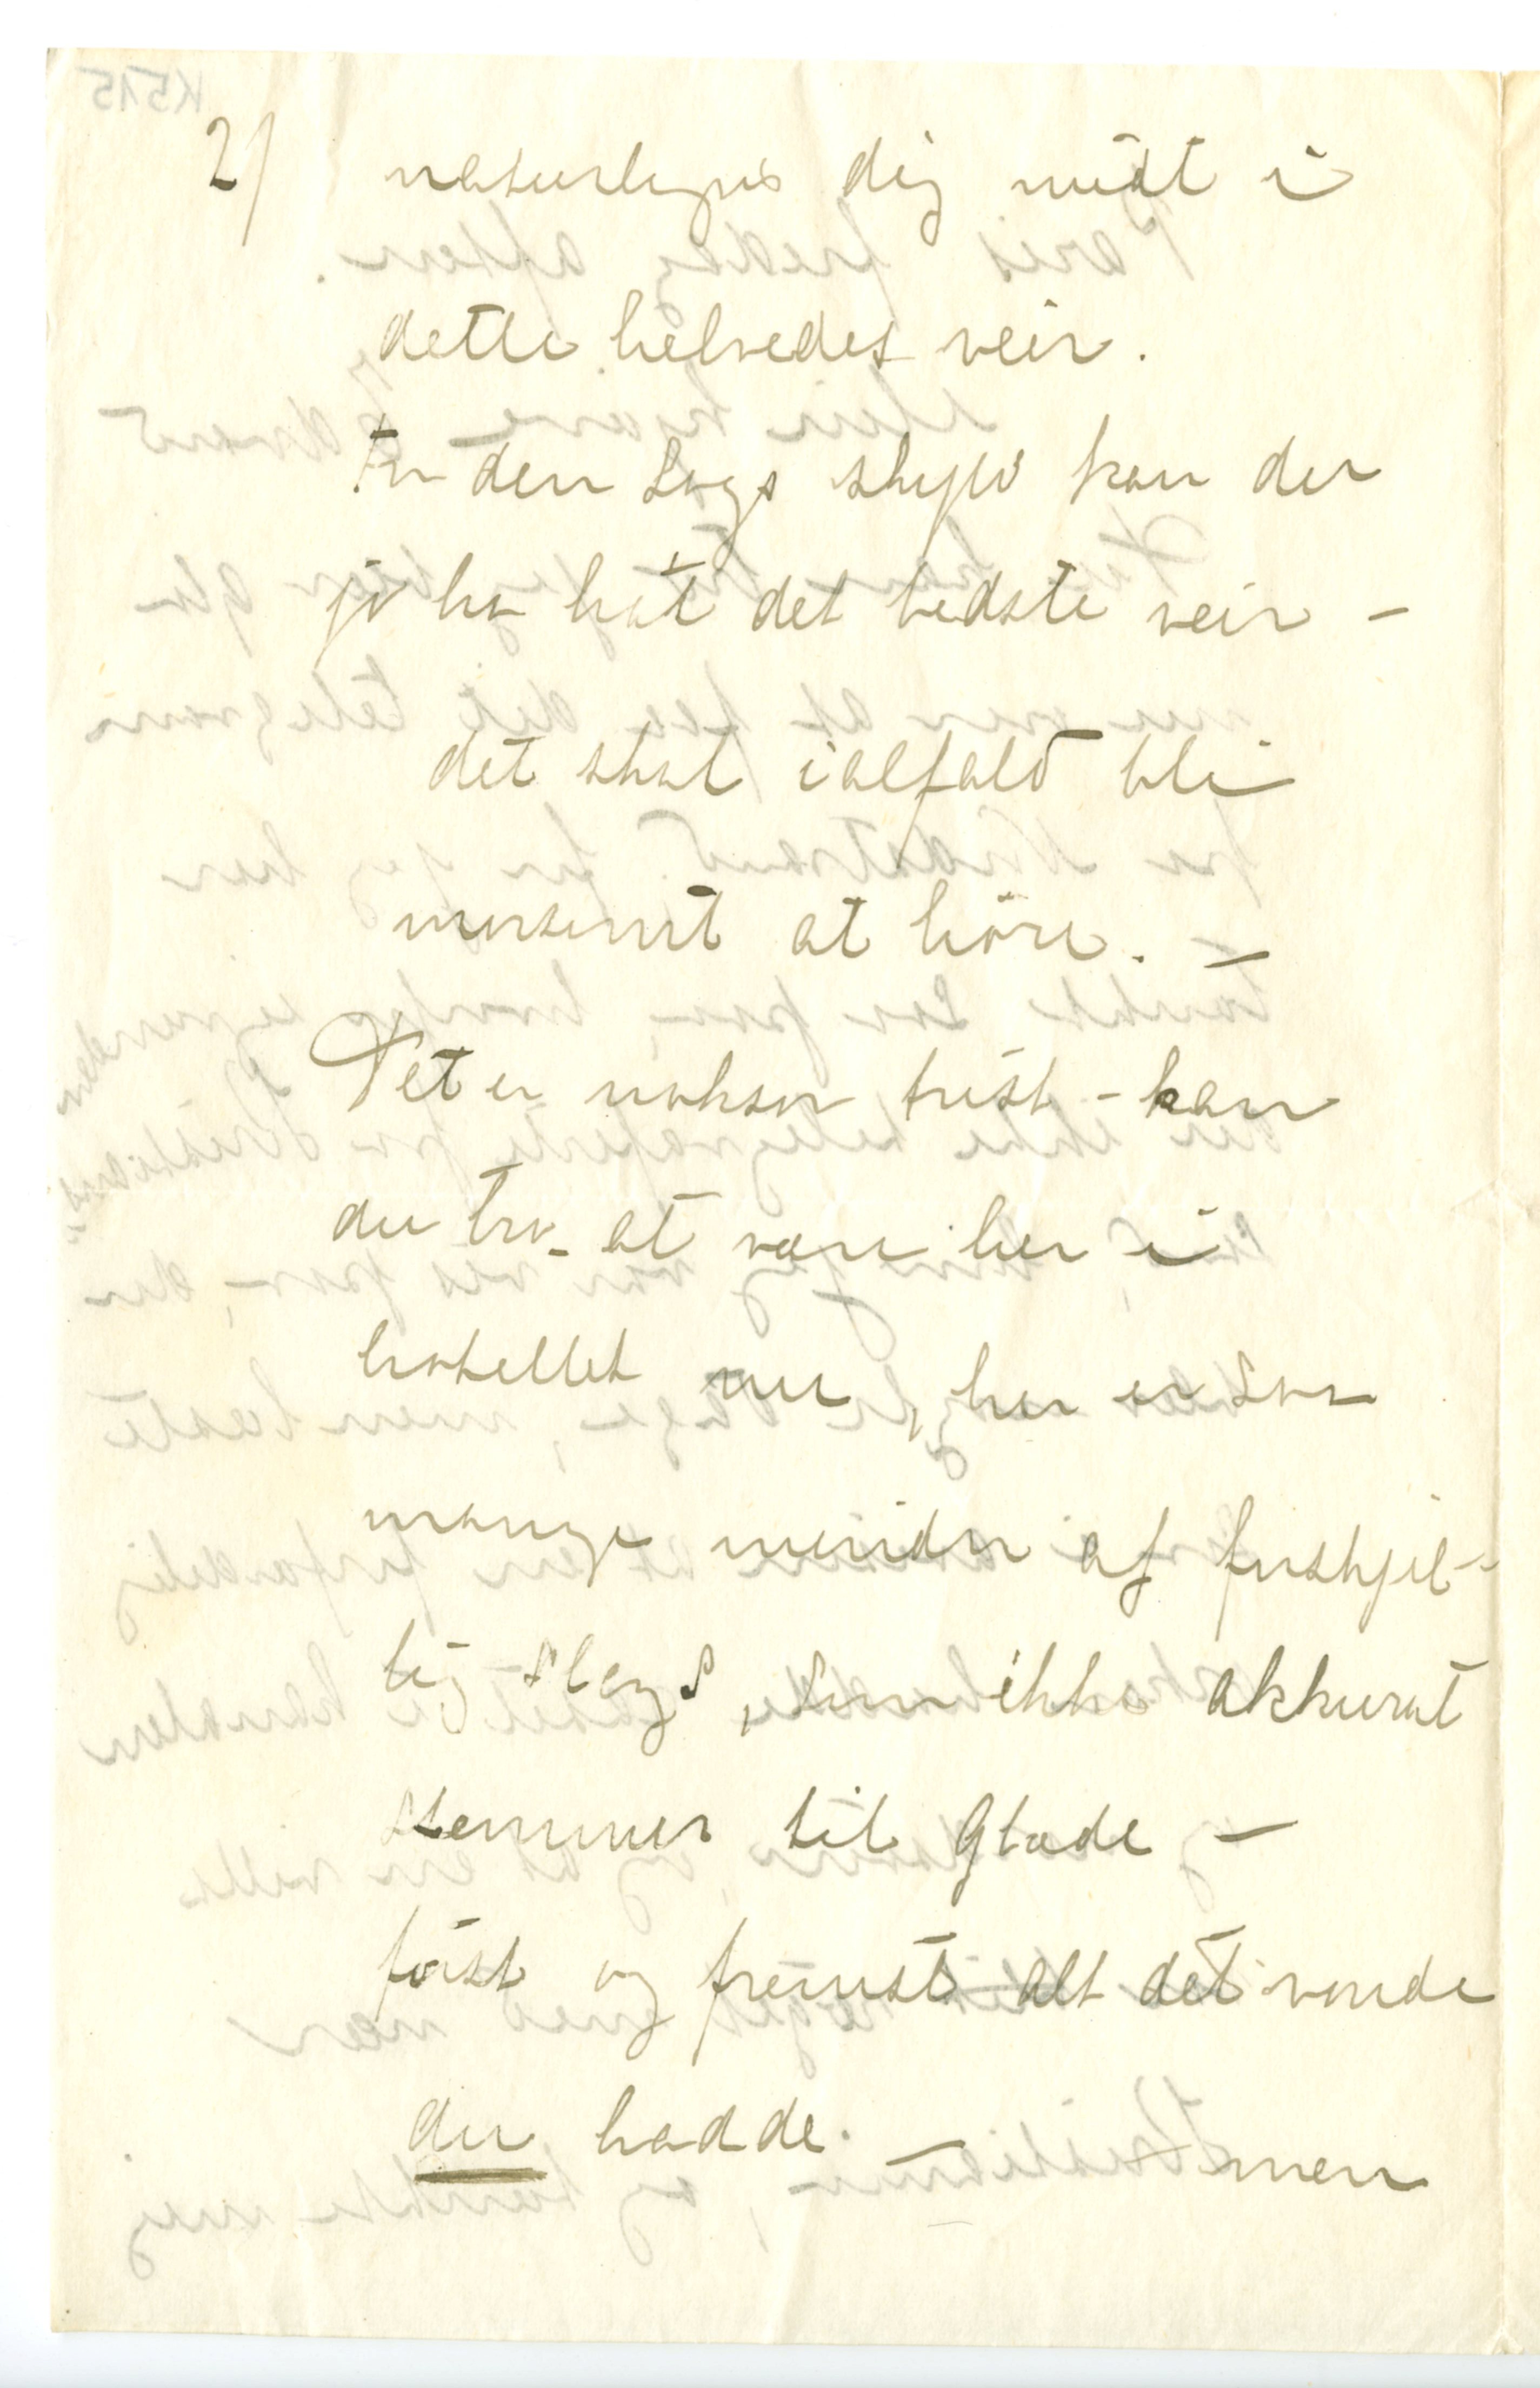 2/ naturligvis dig midt i
dette helvedes veir.
For den sags skyld kan du
jo ha hat det bedste veir –
det skal ialfald bli
morsomt at höre. –
Det er noksaa trist – kan
du tro – at være her i
hotellet nu, her er saa
mange minder af forskjel-
lig slags, som ikke akkurat
stemmer til Glæde –
först og fremst alt det vonde
du hadde. – men